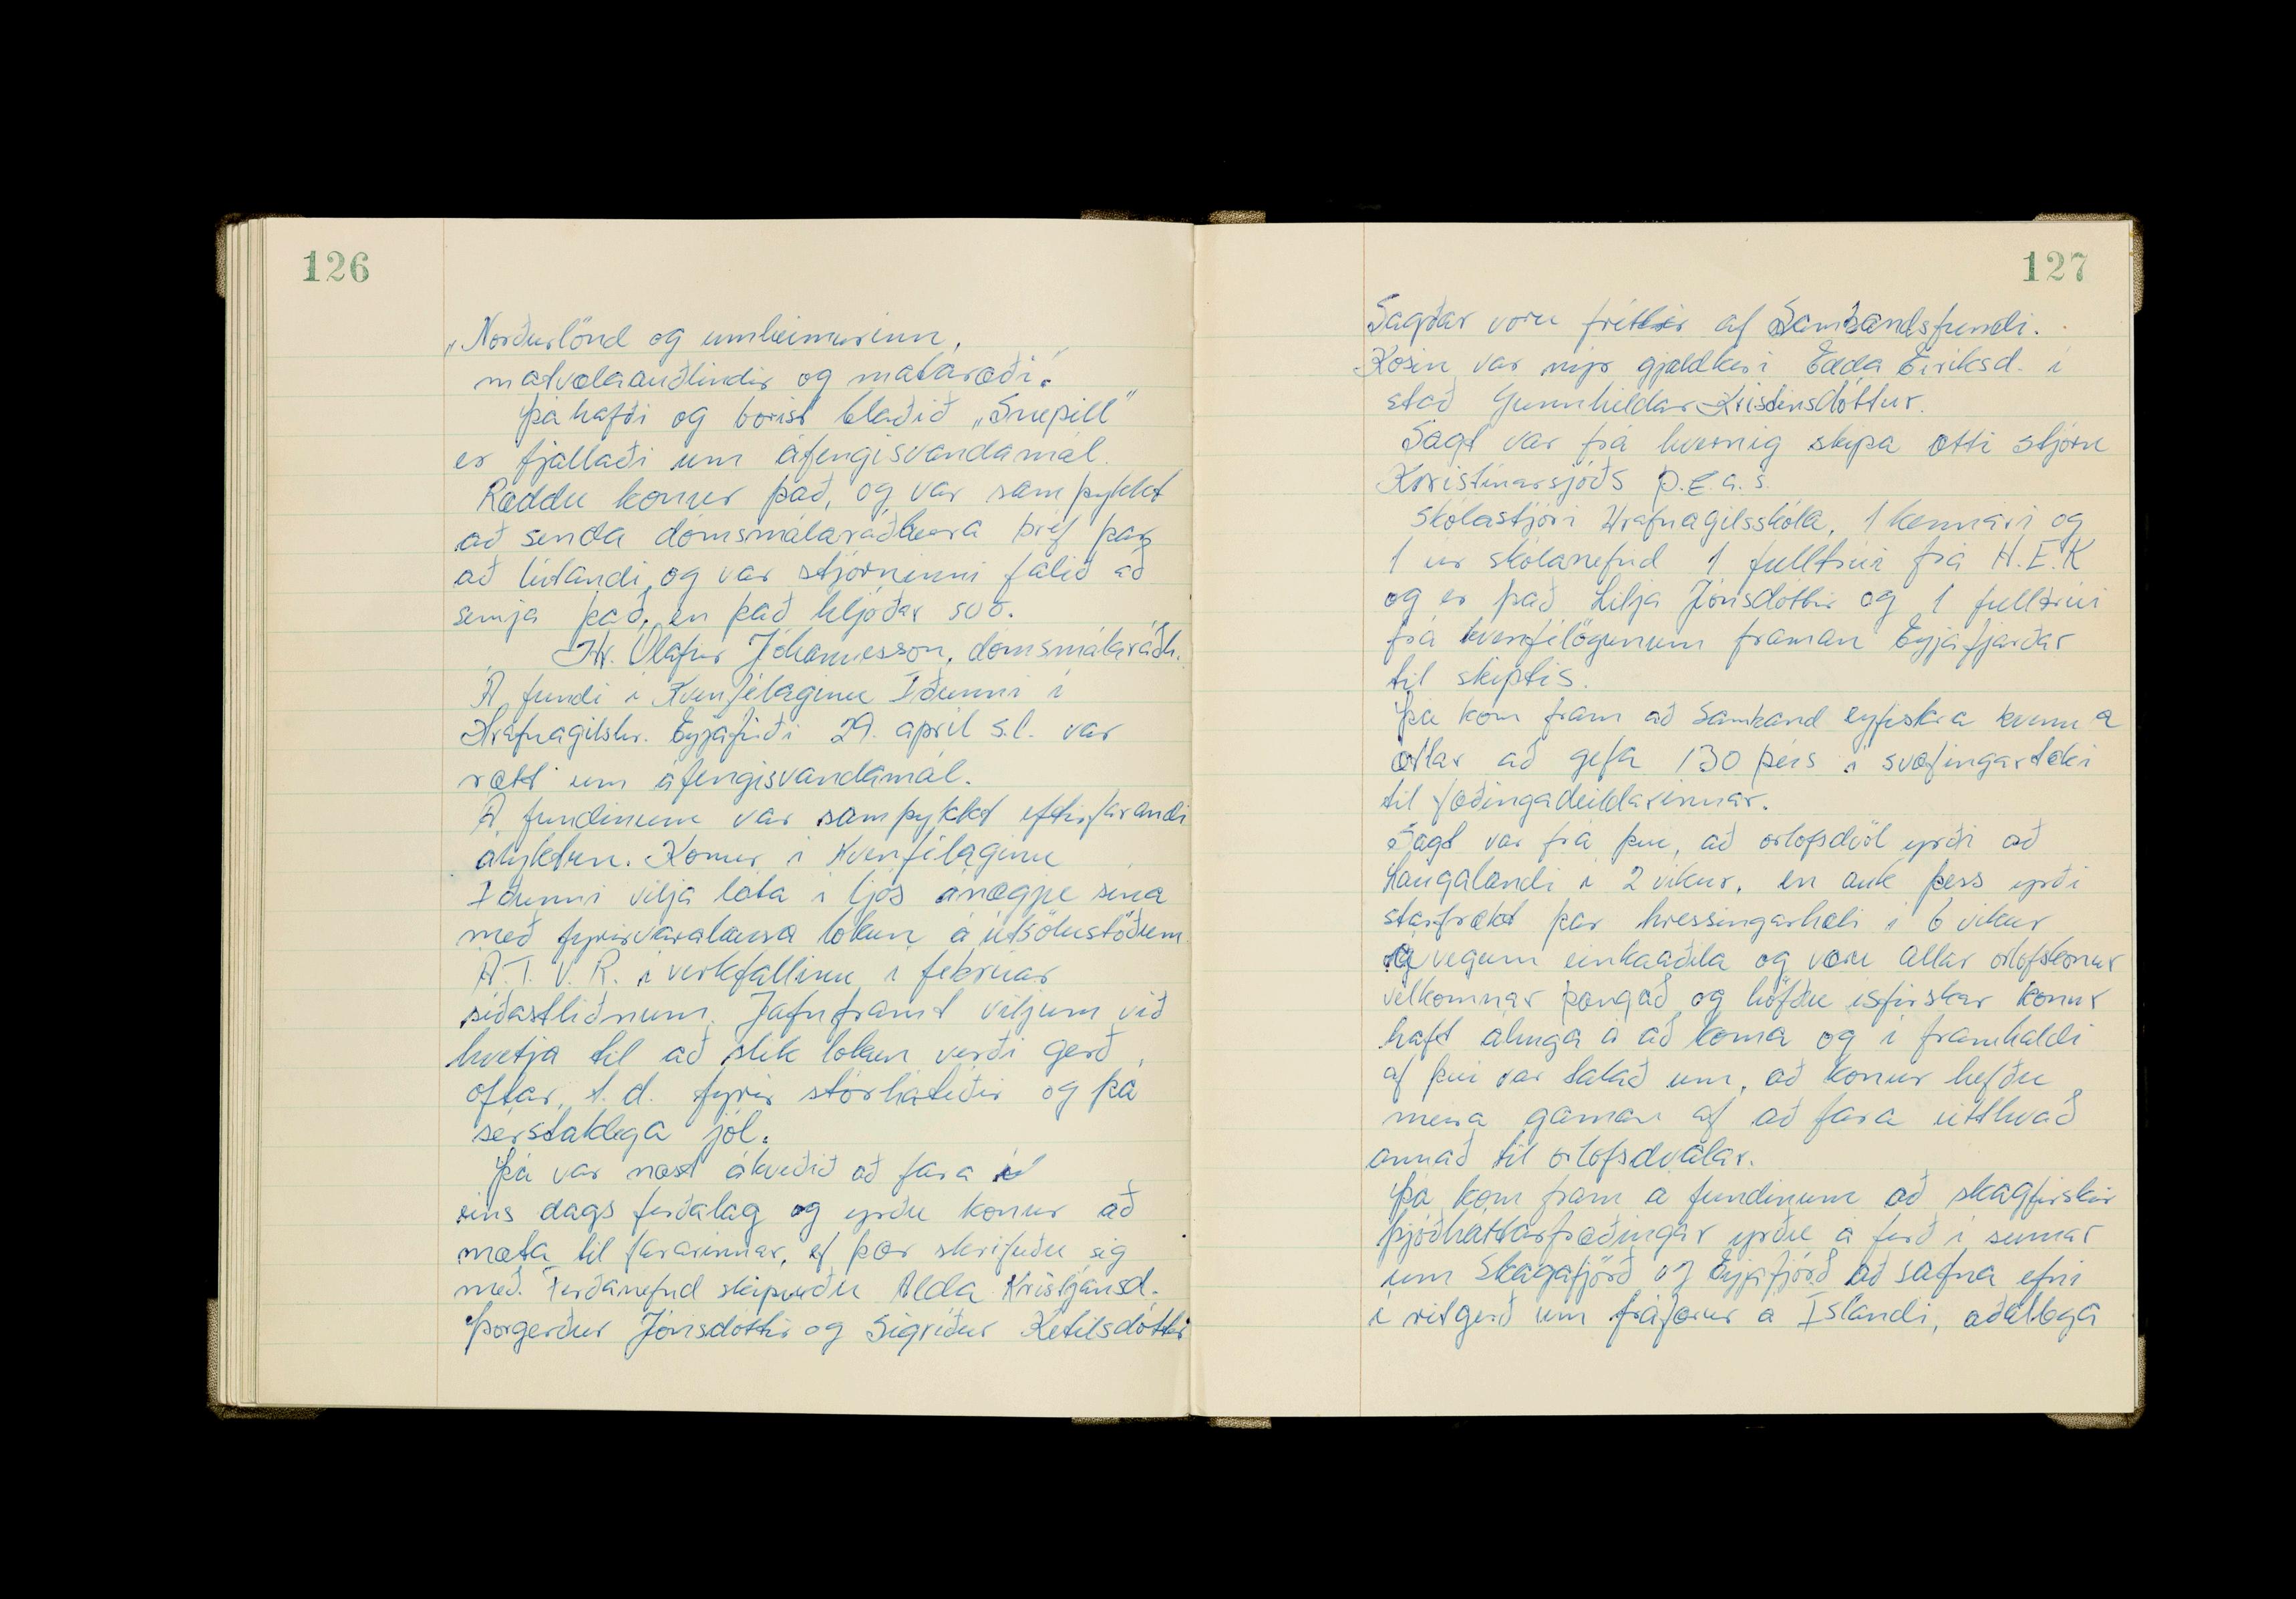 126
„Norðurlönd og umheimurinn,
matvælaauðlindir og mataræði."
Þá hafði og borist blaðið „Snepill"
er fjallaði um áfengisvandamál.
Ræddu konur það, og var samþykkt
að senda dómsmálaráðherra bréf þar
að lútandi, og var stjórninni falið að
semja það, en það hljóðar svo.
Hr. Ólafur Jóhannesson, dómsmálaráðh.
Á fundi í Kvenfélaginu Iðunni í
Hrafnagilshr. Eyjafirði 29. apríl s.l. var
rætt um áfengisvandamál.
Á fundinum var samþykkt eftirfarandi
ályktun. Konur í Kvenfélaginu
Iðunni vilja láta í ljós ánægju sína
með fyrirvaralausa lokun á útsölustöðum
Á.T.V.R. í verkfallinu í febrúar
síðastliðnum. Jafnframt viljum við
hvetja til að slík lokun verði gerð,
oftar, t.d. fyrir stórhátíðir og þá
sérstaklega jól.
Þá var næst ákveðið að fara í
eins dags ferðalag og yrðu konur að
mæta til fararinnar, ef þær skrifuðu sig
með. Ferðanefnd skipuðu Alda Kristjánsd.
Þorgerður Jónsdóttir og Sigríður Ketilsdóttir
127
Sagðar voru fréttir af Sambandsfundi.
Kosin var nýr gjaldkeri Edda Eiríksd. í
stað Gunnhildar Kristinsdóttur.
Sagt var frá hvernig skipa ætti stjórn
Kristínarsjóðs þ.e.a.s.
skólastjóri Hrafnagilsskóla, 1 kennari og
1 úr skólanefnd 1 fulltrúi frá H.E.K
og er það Lilja Jónsdóttir og 1 fulltrúi
frá kvenfélögunum framan Eyjafjarðar
til skiptis.
Þá kom fram að Samband eyfiskra kvenna
ætlar að gefa 130 þús í svæfingartæki
til fæðingadeildarinnar.
Sagt var frá því, að orlofsdvöl yrði að
Laugalandi í 2 vikur, en auk þess yrði
starfrækt þar hressingarhæli í 6 vikur
á vegum einkaaðila og voru allar orlofskonur
velkomnar þangað, og höfðu ísfirskar konur
haft áhuga á að koma og í framhaldi
af því var talað um, að konur hefðu
meira gaman af að fara eitthvað
annað til orlofsdvalar.
Þá kom fram á fundinum að skagfirskir
þjóðháttarfræðingar yrðu á ferð í sumar
um Skagafjörð og Eyjafjörð að safna efni
í ritgerð um fráfærur á Íslandi, aðallega